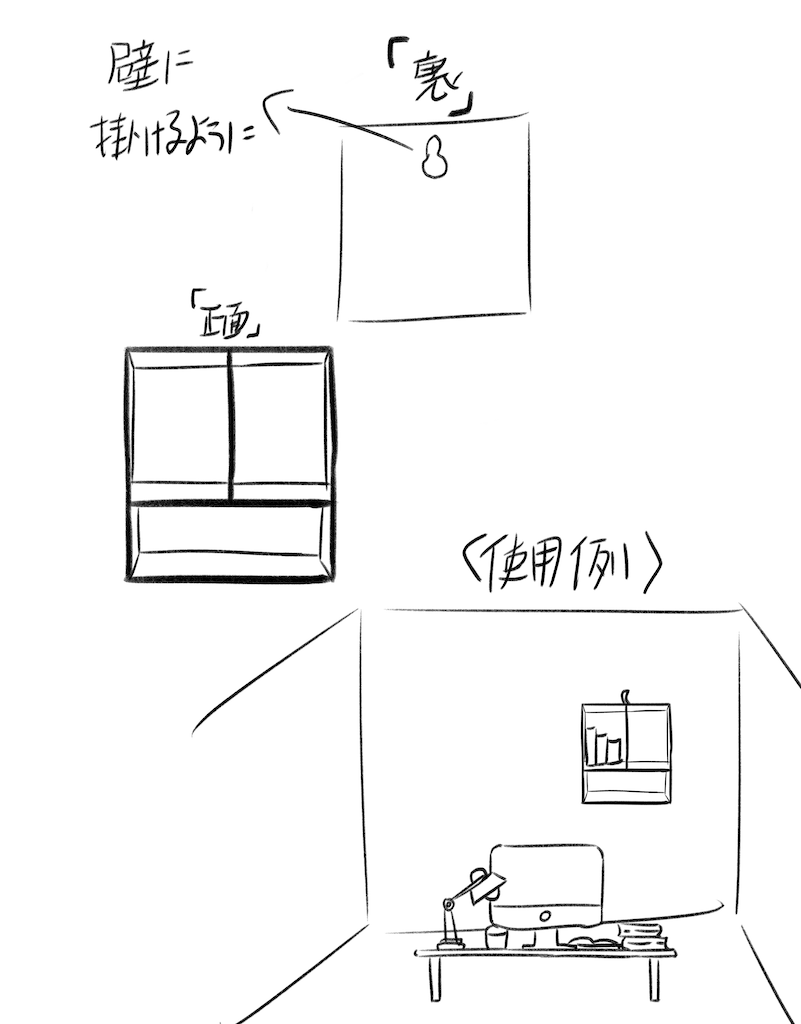 壁に
掛けるように
「裏」
「正面」
〈使用例〉